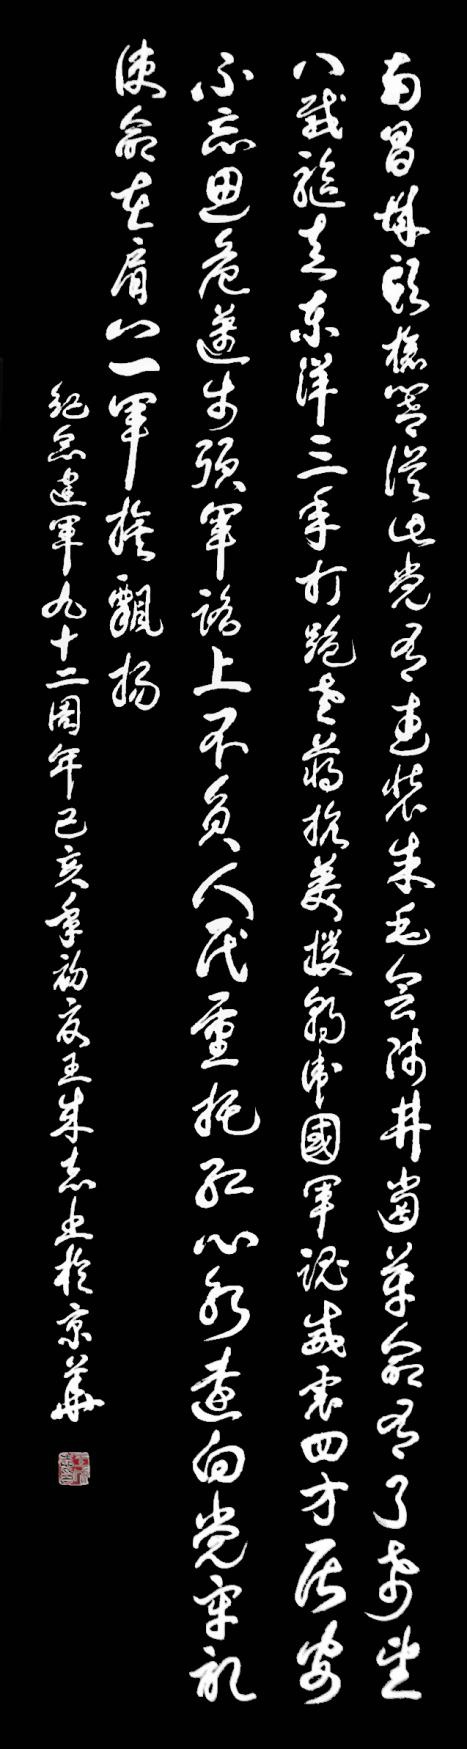 南昌城头枪响从此党有武装朱毛会师井冈革命有了希望
八载驱走东洋三年打跑老蒋抗美援朝卫國军魂威震四方居安
不忘思危迈步强军路上不负人民重托红心永远向党牢记
使命在肩八一军旗飘扬
纪念建军九十二周年己亥年初夏王朱志书於京華